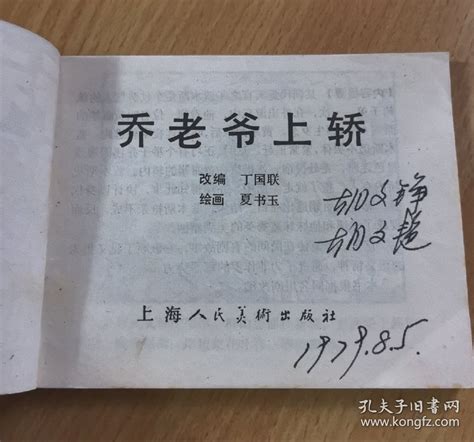 乔老爷上轿
改编 丁国联
绘画 夏书玉
胡文铮
胡文超
上海人民美術出版社
1979.8.5.
孔夫子旧书网
www.kongfz.com